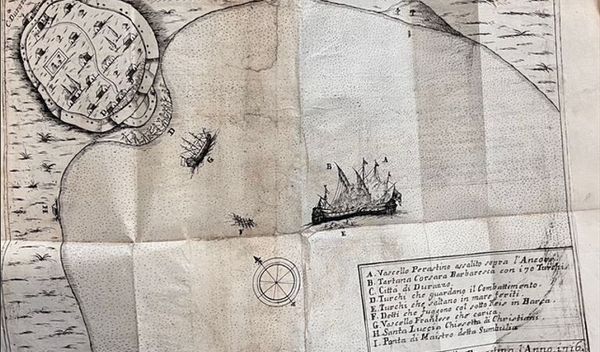 C. Durazzo
A. Vascello Perastino assalito sopra l'Ancore.
B. Tartana Corsara Barbaresca con 170 Turchi.
C. Città di Durazzo.
D. Turchi che guardano il Combattimento.
E. Turchi che saltano in mare feriti.
F. Detti che fuggono col sotto Reis in Barca.
G. Vascello Franzese che carica.
H. Santa Luccia Chiesetta di Christiani
I. Ponta di Maistro detta Sumbulia
l'Anno 1716.
D
G
B
A
F
E
H
I